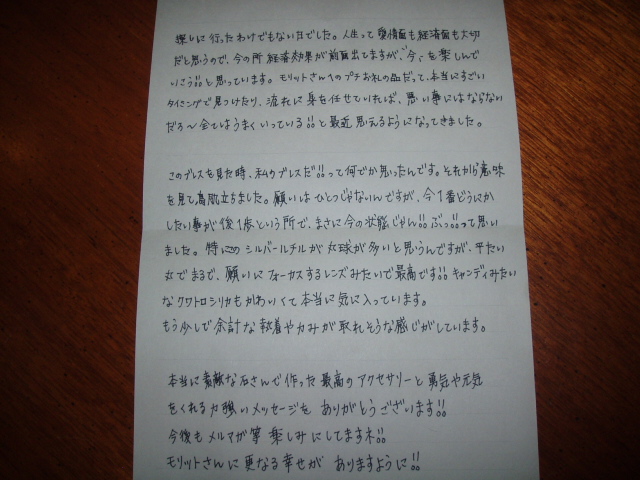 楽しに行ったわけでもないたでした。人生って愛情面も経済面も大切
だと思うので、今の所経済効果が前面出てますが、"今"を楽しんで
いこう!!と思っています。モリットさんへのプチお礼の品だって、本当にすごい
タイミングで見つけたり、流れに身を任せていれば、悪い事にはならない
だろ〜全てはうまくいっている!!と最近思えるようになってきました。
このブレスを見た時、私のブレスだ!!って何でか思ったんです。それから意味
を見て鳥肌立ちました。願いはひとつじゃないんですが、今1番どうにか
したい事が後1歩という所で、まさに今の状態じゃん!!ぶっ!!って思い
ました。特にこのシルバールチルが丸球が多いと思うんですが、平たい
丸でまるで、願いにフォーカスするレンズみたいで最高です!!キャンディみたい
なクワトロシリカもかわいくて本当に気に入っています。
もう少しで余計な執着や力みが取れそうな感じがしています。
本当に素敵な石さんで作った最高のアクセサリーと勇気や元気
をくれる力強いメッセージをありがとうございます!!
今後もメルマガ等楽しみにしてますネ!!
モリットさんに更なる幸せがありますように!!